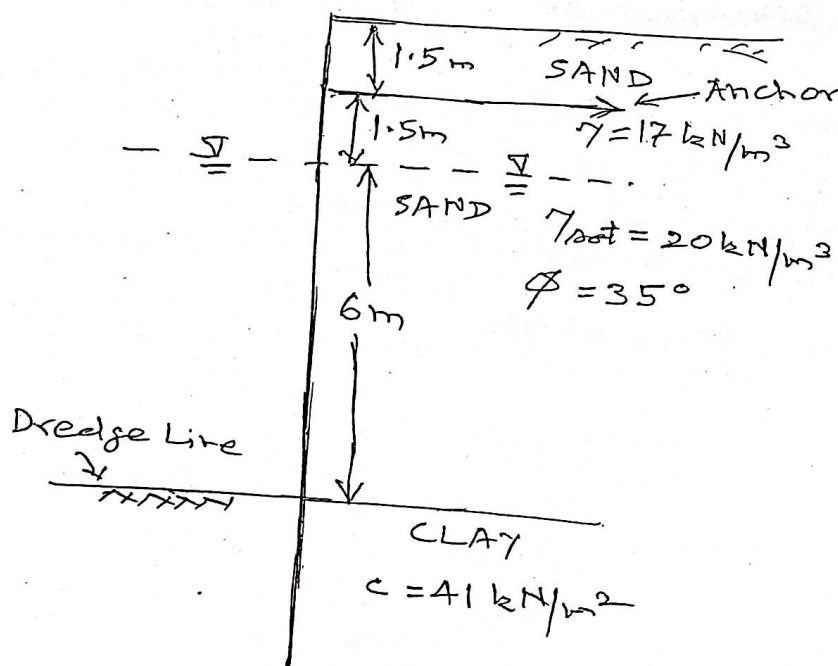 1.5m
SAND
Anchor
γ = 17 kN/m³
1.5m
SAND
γsat = 20 kN/m³
φ = 35°
6m
Dredge Line
CLAY
c = 41 kN/m²